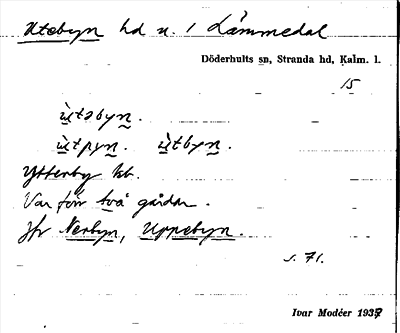 Utebyn hd n. 1 Lämmedal
Döderhults sn, Stranda hd, Kalm. l.
15
ùtəbyn.
ùtpyn. ùtbyn.
Ytterby kb.
Var förr två gårdar.
Jfr Nerbyn, Uppebyn.
s. 71.
Ivar Modéer 1937